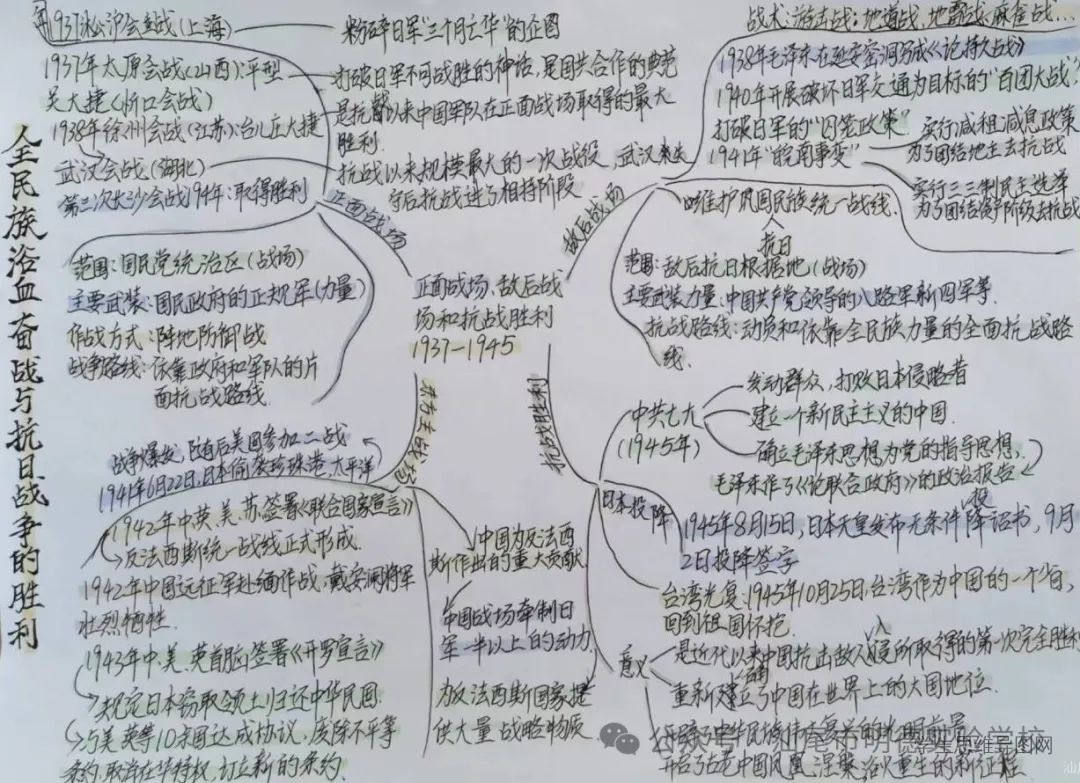 全民族浴血奋战与抗日战争的胜利
1937淞沪会战(上海)
粉碎日军"三个月亡华"的企图
1937年太原会战(山西):平型
关大捷(忻口会战)
打破日军不可战胜的神话,是国共合作的典范
1938年徐州会战(江苏):台儿庄大捷
是抗战以来中国军队在正面战场取得的最大
胜利.
武汉会战(湖北)
抗战以来规模最大的一次战役,武汉失
守后抗战进了相持阶段
第三次长沙会战1941年:取得胜利
正面战场
范围:国民党统治区(战场)
主要武装:国民政府的正规军(力量)
作战方式:阵地防御战
战争路线:依靠政府和军队的片
面抗战路线.
正面战场、敌后战
场和抗战胜利
1937-1945
敌后战场
战术:游击战:地道战、地雷战、麻雀战...
1938年毛泽东在延安窑洞写成《论持久战》
1940年开展破坏日军交通为目标的"百团大战"
打破日军的"囚笼政策"
1941年"皖南事变"
实行减租减息政策
为了团结地主去抗战
实行三三制民主选举
为了团结资产阶级去抗战
维护民国民族统一战线.
抗日
范围:敌后抗日根据地(战场)
主要武装力量:中国共产党领导的八路军新四军等.
抗战路线:动员和依靠全民族力量的全面抗战路
线.
东方主战场
战争爆发,随后美国参加二战
1941年6月22日,日本偷袭珍珠港,太平洋
1942年中英、美、苏签署《联合国家宣言》
反法西斯统一战线正式形成.
1942年中国远征军赴缅作战,戴安澜将军
壮烈牺牲.
1943年中、美、英首脑签署《开罗宣言》
规定日本窃取领土归还中华民国
与美英等10余国达成协议,废除不平等
条约,取消在华特权,订立新的条约.
中国为反法西
斯作出的重大贡献
中国战场牵制日
军一半以上的动力.
为反法西斯国家提
供大量战略物质
抗战胜利
中共七大
(1945年)
发动群众,打败日本侵略者
建立一个新民主主义的中国.
确立毛泽东思想为党的指导思想,
毛泽东作了《论联合政府》的政治报告
日本投降
投
1945年8月15日,日本天皇发布无条件降诏书,9月
2日投降签字
台湾光复:1945年10月25日,台湾作为中国的一个省,
回到祖国怀抱.
意义
是近代以来中国抗击敌人入侵所取得的第一次完全胜利
重新确立了中国在世界上的大国地位.
开辟了中华民族伟大复兴的光明前景
开启了古老中国凤凰涅槃、浴火重生的新征程
公众号·汕尾市明德实验学校
思维导图网